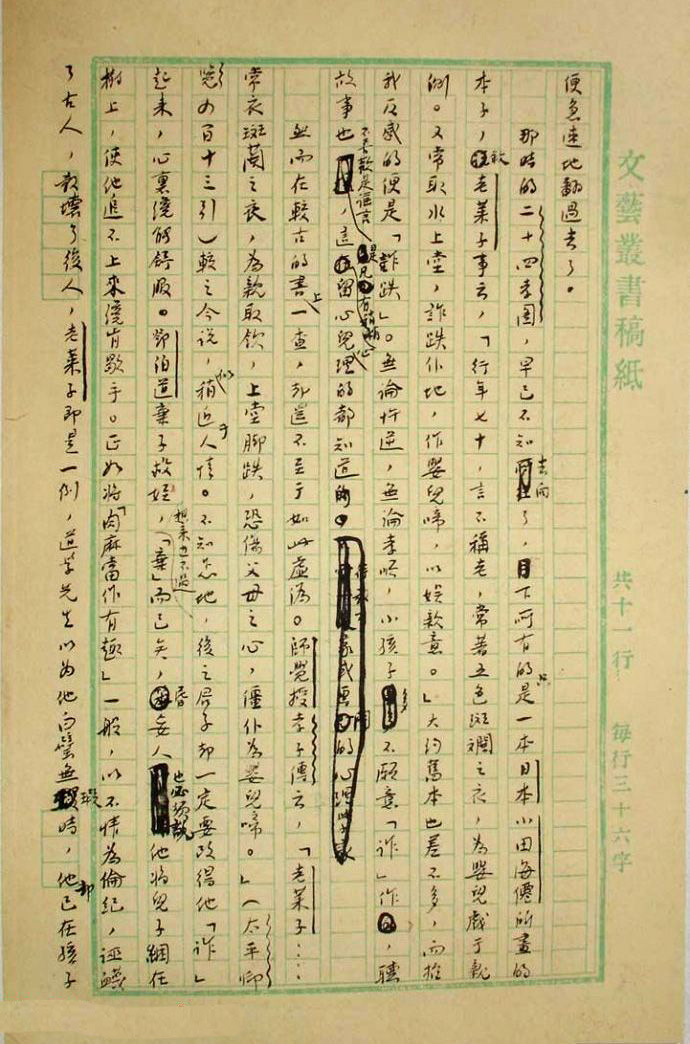 文藝叢書稿紙
共十一行 每行三十六字
便急速地翻過去了。
那時的二十四孝圖，早已不知去向了，目下所有的只是一本日本小田海僊所畫的
本子，敍老萊子事云，「行年七十，言不稱老，常著五色斑斕之衣，為嬰兒戲于親
側。又常取水上堂，詐跌仆地，作嬰兒啼，以娛親意。」大約舊本也差不多，而招
我反感的便是「詐跌」。無論忤逆，無論孝順，小孩子多不願意「詐」作，聽
故事也不喜歡是謠言，這是凡有稍稍留心兒理的都知道的。
然而在較古的書上一查，却還不至于如此虛偽。師覺授孝子傳云，「老萊子……
常衣斑蘭之衣，為親取飲，上堂脚跌，恐傷父母之心，僵仆為嬰兒啼。」（太平御
覽四百十三引）較之今說，似稍近于人情。不知怎地，後之君子却一定要改得他「詐」
起來，心裏纔能舒服。鄧伯道棄子救姪，想來也不過「棄」而已矣，昏妄人也必須說他將兒子綑在
樹上，使他追不上來纔肯歇手。正如將「肉麻當作有趣」一般，以不情為倫紀，誣衊
了古人，教壞了後人，老萊子即是一例，道學先生以為他白璧無瑕時，他却已在孩子